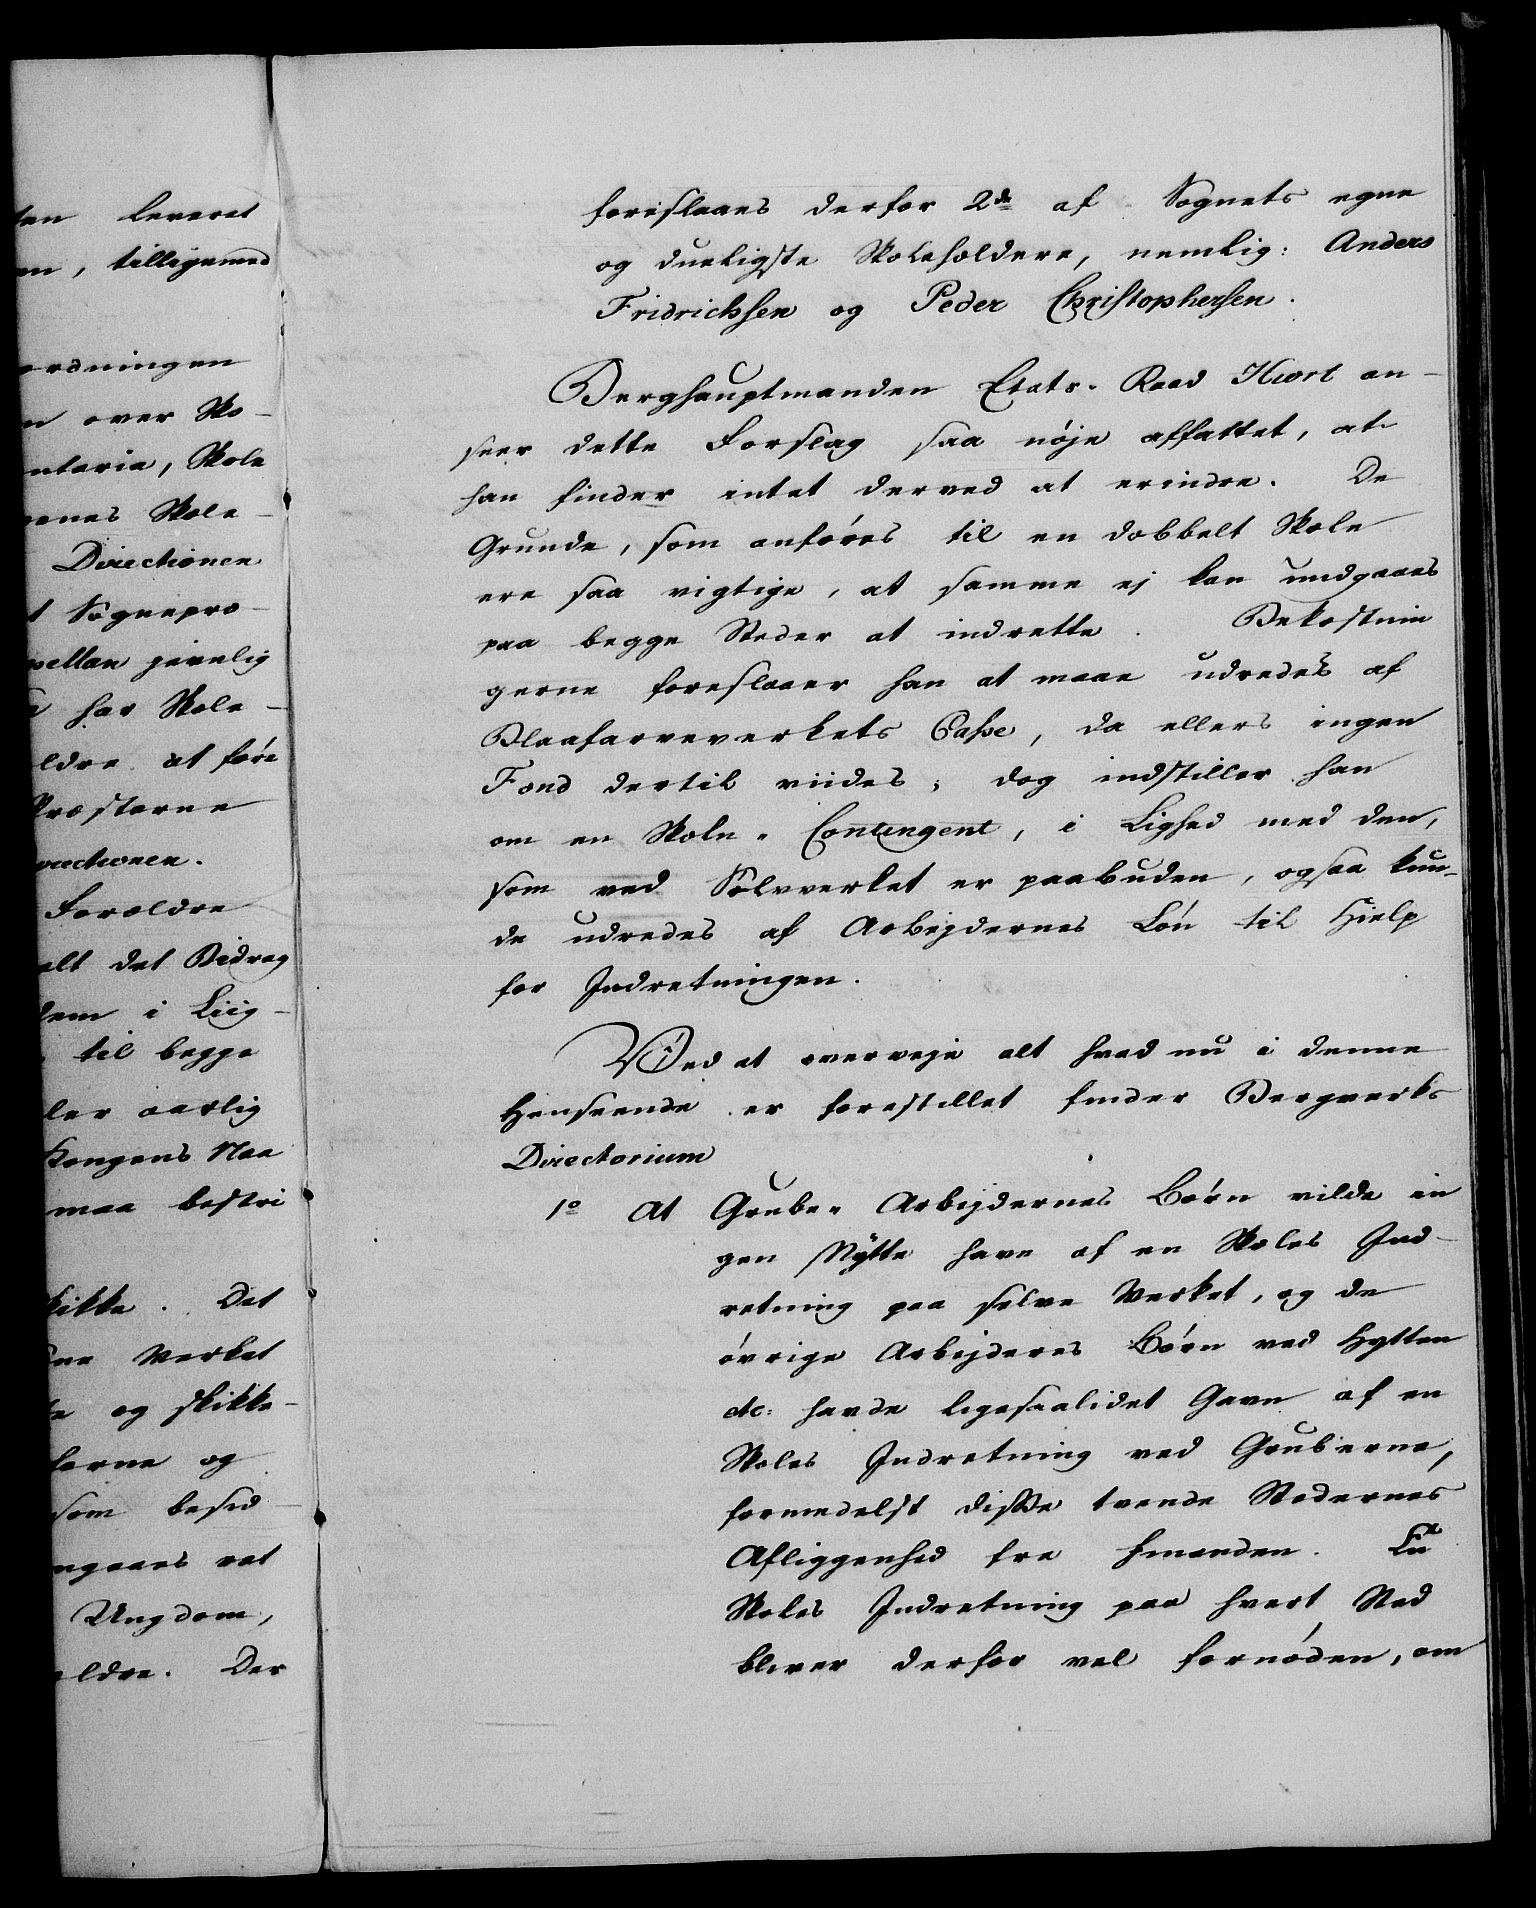 ten leveret
en, tilligemed
ordningen
n over Sko-
ntaria, Skole
enes Skole-
Directionen
t Sognepræ-
pellan jevnlig
har Skole-
ldre at føre
Præsterne
irectionen.
Forældre
alt det Bidrag
dem i Liig-
til begge
ler aarlig
Kongens Naa
maa bestri
skikke. Det
ne Verket
e og skikke-
erne og
som besid-
ngaaes ret
Ungdom,
ældre. Der
foreslaaes derfor 2de af Sognets egne
og dueligste Skoleholdere, nemlig: Anders
Fridrichsen og Peder Christophersen.
Berghauptmanden Etats-Raad Hiort an-
seer dette Forslag saa nøje affattet, at
han finder intet derved at erindre. De
Grunde, som anføres til en dobbelt Skole
ere saa vigtige, at samme ej kan undgaaes
paa begge Steder at indrette. Bekostnin
gerne foreslaaer han at maae udredes af
Blaafarveverkets Casse, da ellers ingen
Fond dertil viides; dog indstiller han
om en Skole-Contingent, i Lighed med den,
som ved Sølvverket er paabuden, ogsaa kun-
de udredes af Arbejdernes Løn til Hielp
for Indretningen.
Ved at overveje alt hvad nu i denne
Henseende er forestillet finder Bergverks
Directorium
1o At Grube-Arbejdernes Børn vilde in
gen Nÿtte have af en Skoles Ind-
retning paa selve Verket, og de
øvrige Arbejderes Børn ved Hytten
etc: havde ligesaalidet Gavn af en
Skoles Indretning ved Gruberne,
formedelst disse tvende Stedernes
Afliggenhed fra hinanden. En
Skoles Indretning paa hvert Sted
bliver derfor vel fornøden, om